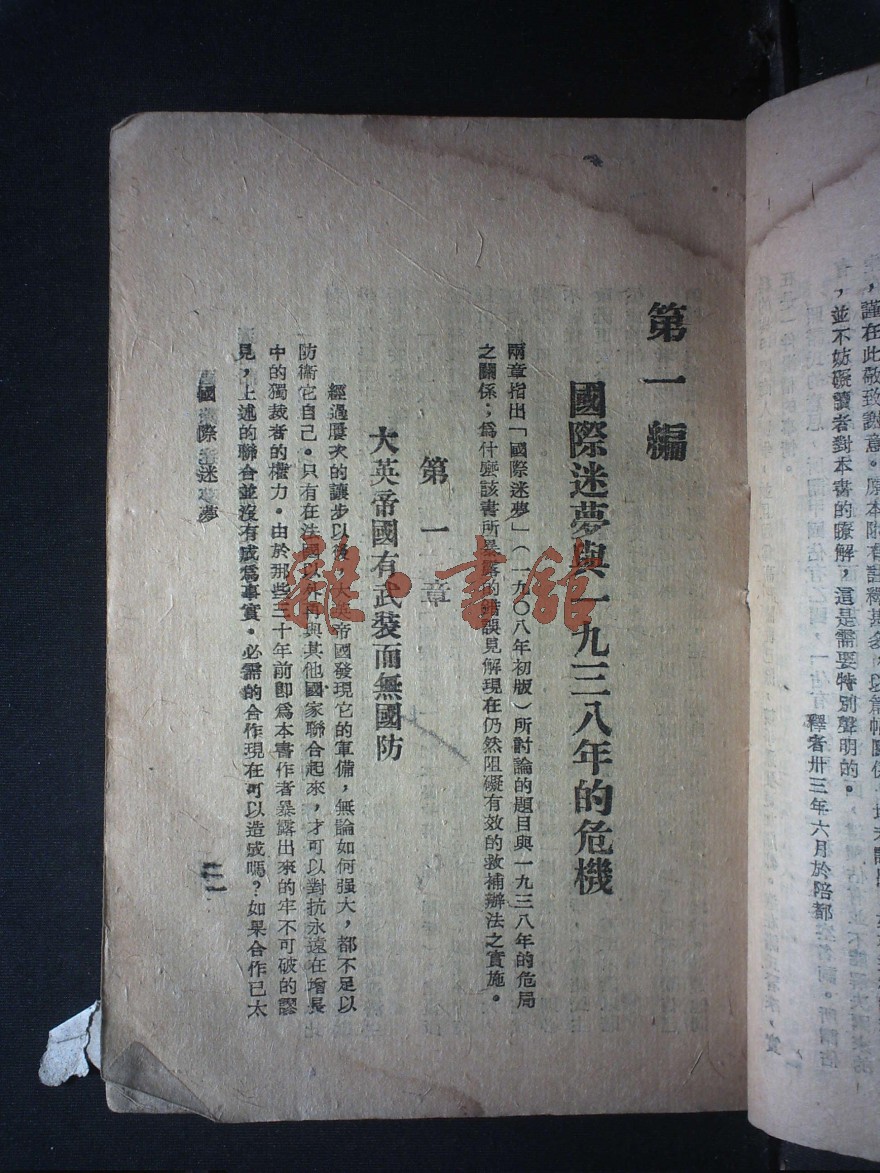 並不妨礙讀者對本書的瞭解，這是需要特別聲明的。
釋者卅三年六月於陪都
第一編
國際迷夢與一九三八年的危機
兩章指出「國際迷夢」（一九〇八年初版）所討論的題目與一九三八年的危局
之關係；爲什麼該書所暴露的錯誤見解現在仍然阻礙有效的救補辦法之實施。
第一章
大英帝國有武裝而無國防
經過屢次的讓步以後，大英帝國發現它的軍備，無論如何强大，都不足以
防衞它自己。只有在法國以外再與其他國家聯合起來，才可以對抗永遠在增長
中的獨裁者的權力。由於那些三十年前卽爲本書作者暴露出來的牢不可破的謬
見，上述的聯合並沒有成爲事實。必需的合作現在可以造成嗎？如果合作已太
國際迷夢
雜·書館